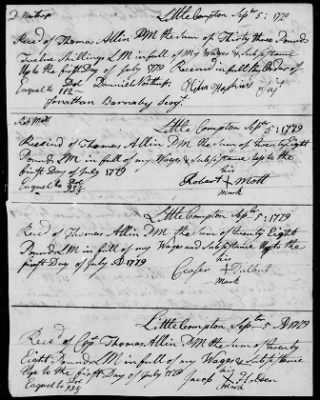 D Northup
Little Compton Sept. 5: 1779
Recd of Thomas Allin DM the Sum of Thirty three Pounds
Twelve Shillings LM in full of my Wages & Subsistance
Up to the first Day of July 1779 Received in full the Order of
Equel to Dol 112 Dennis Northup
Jonathan Barnaby Serjt
Rob Mott
Little Compton Sept. 5: 1779
Received of Thomas Allin DM the Sum of Twenty Eight
Pounds LM in full of my Wages & Subsistance Up to the
first Day of July 1779
Equel to Dol 93⅓
his
Robert + Mott
mark
Little Compton Sept. 5: 1779
Recd of Thomas Allin DM the Sum of Twenty Eight
Pounds LM in full of my Wages and Subsistance Up to the
first Day of July AD 1779
his
Ceaser + Talbut
Mark
Little Compton Sept. 5 AD 1779
Recd of Cpt Thomas Allin DM the Sum of Twenty
Eight Pounds LM in full of my Wages & Subsistance
Up to the first Day of July 1779
Equel to Dol 93⅓
his
Jacob +
Mark